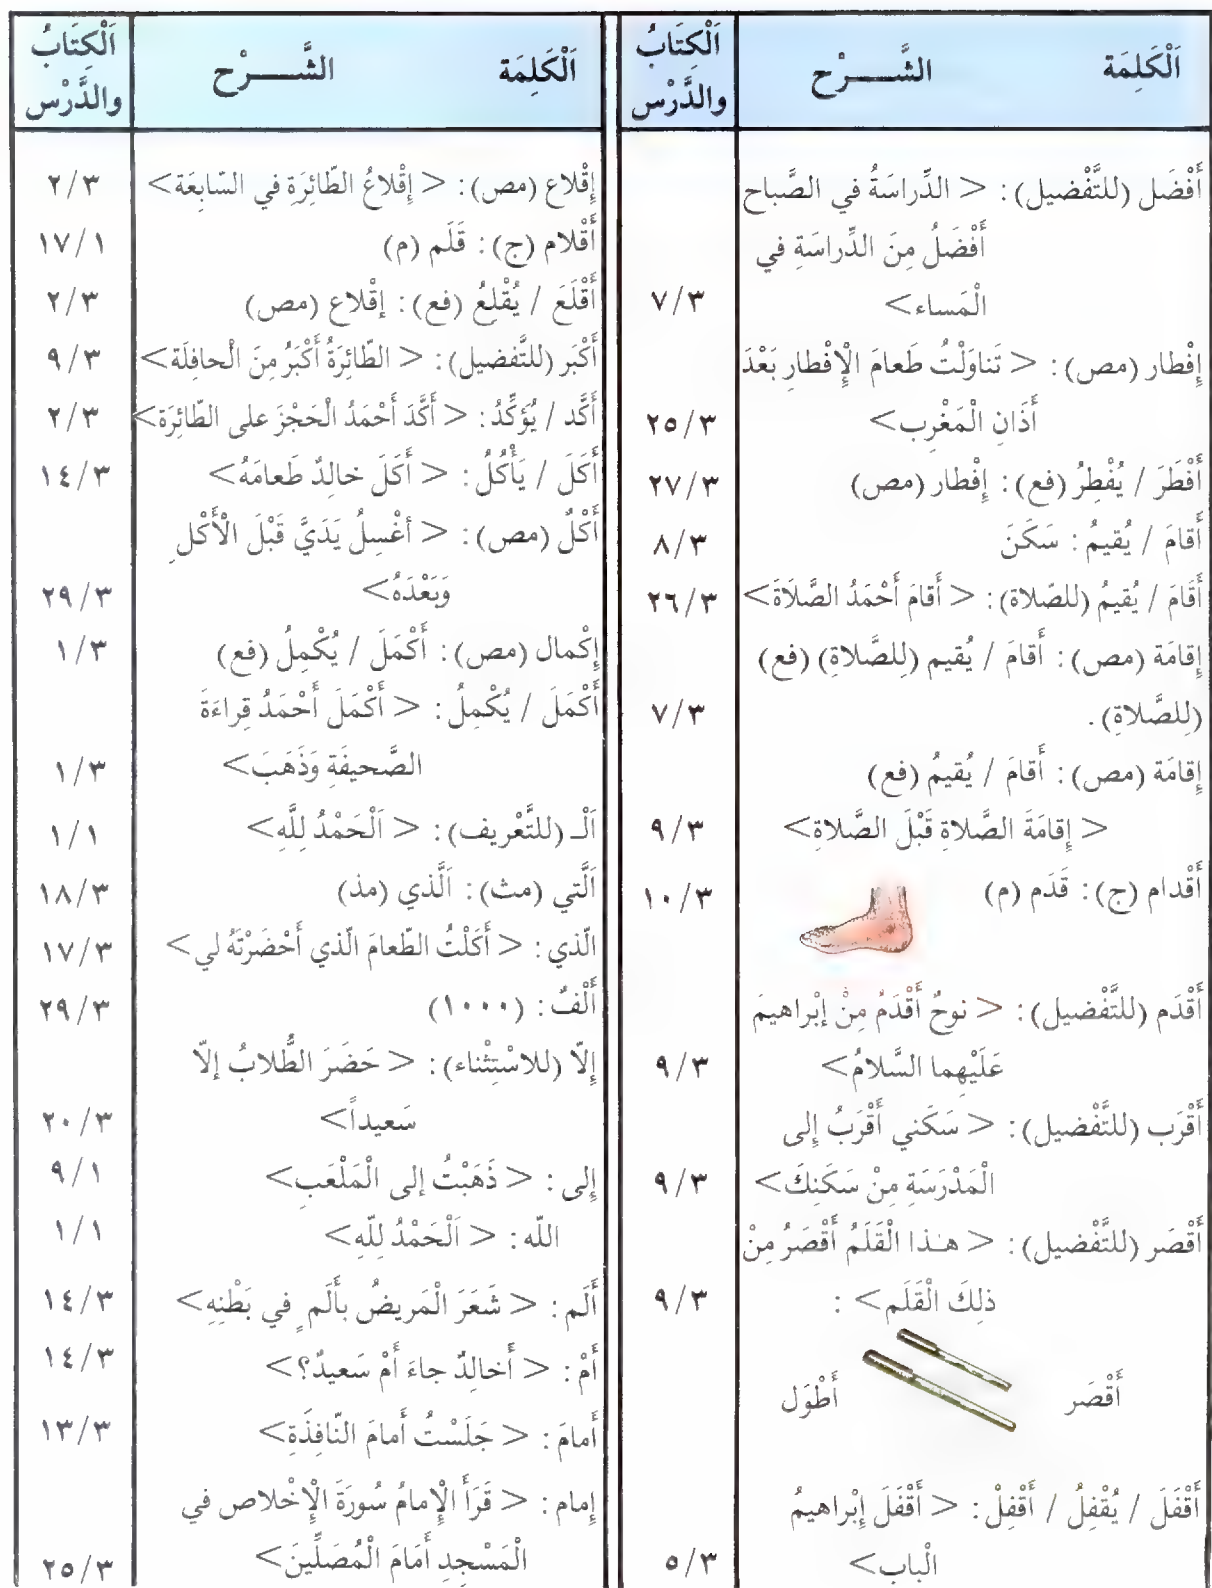 اَلْكَلِمَة الشَّـــرْح اَلْكِتَابُ والدَّرْس
أَفْضَل (للتَّفْضيل): < الدِّراسَةُ في الصَّباح
أَفْضَلُ مِنَ الدِّراسَةِ في
الْمَساء> ٧/٣
إِفْطار (مص): < تَناوَلْتُ طَعامَ الْإِفْطارِ بَعْدَ
أَذَانِ الْمَغْرِب> ٢٥/٣
أَفْطَرَ / يُفْطِرُ (فع): إِفْطار (مص) ٢٧/٣
أَقامَ / يُقيمُ: سَكَنَ ٨/٣
أَقَامَ / يُقيمُ (للصّلاة): < أَقامَ أَحْمَدُ الصَّلَاةَ> ٢٦/٣
إِقامَة (مص): أَقامَ / يُقيم (لِلصَّلاةِ) (فع)
(لِلصَّلاةِ). ٧/٣
إِقامَة (مص): أَقامَ / يُقيمُ (فع)
< إِقامَةَ الصَّلاةِ قَبْلَ الصَّلاةِ> ٩/٣
أَقْدام (ج): قَدَم (م) ١٠/٣
أَقْدَم (للتَّفْضيل): < نوحٌ أَقْدَمُ مِنْ إبْراهيمَ
عَلَيْهِما السَّلامُ> ٩/٣
أَقْرَب (للتَّفْضيل): < سَكَني أَقْرَبُ إِلى
الْمَدْرَسَةِ مِنْ سَكَنِكَ> ٩/٣
أَقْصَر (للتَّفْضيل): < هـٰذا الْقَلَمُ أَقْصَرُ مِنْ
ذلِكَ الْقَلَم> : ٩/٣
أَقْصَر أَطْوَل
أَقْفَلَ / يُقْفِلُ / أَقْفِلْ: < أَقْفَلَ إِبْراهيمُ
الْباب> ٥/٣
اَلْكَلِمَة الشَّـــرْح اَلْكِتَابُ والدَّرْس
إِقْلاع (مص): < إِقْلاعُ الطّائِرَةِ في السّابِعَة> ٢/٣
أَقْلام (ج): قَلَم (م) ١٧/١
أَقْلَعَ / يُقْلِعُ (فع): إِقْلاع (مص) ٢/٣
أَكْبَر (للتَّفضيل): < الطّائِرَةُ أَكْبَرُ مِنَ الْحافِلَة> ٩/٣
أَكَّد / يُؤَكِّدُ: < أَكَّدَ أَحْمَدُ الْحَجْزَ على الطّائِرَة> ٢/٣
أَكَلَ / يَأْكُلُ: < أَكَلَ خالِدٌ طَعامَهُ> ١٤/٣
أَكْلٌ (مص): < أغْسِلُ يَدَيَّ قَبْلَ الْأَكْلِ
وَبَعْدَهُ> ٢٩/٣
إِكْمال (مص): أَكْمَلَ / يُكْمِلُ (فع) ١/٣
أَكْمَلَ / يُكْمِلُ: < أَكْمَلَ أَحْمَدُ قِراءَةَ
الصَّحيفَةِ وَذَهَبَ> ١/٣
اَلْـ (للتَّعْريف): < اَلْحَمْدُ لِلَّهِ> ١/١
اَلَّتي (مث): اَلَّذي (مذ) ١٨/٣
الّذي: < أَكَلْتُ الطّعامَ الّذي أَحْضَرْتَهُ لي> ١٧/٣
أَلْفٌ: (١٠٠٠) ٢٩/٣
إِلّا (للاسْتِثْناء): < حَضَرَ الطُّلابُ إلّا
سَعيداً> ٢٠/٣
إِلى: < ذَهَبْتُ إلى الْمَلْعَبِ> ٩/١
اللّه: < اَلْحَمْدُ لِلّهِ> ١/١
أَلَم: < شَعَرَ الْمَريضُ بأَلَمٍ في بَطْنِهِ> ١٤/٣
أَمْ: < أَخالِدٌ جاءَ أَمْ سَعيدٌ؟> ١٤/٣
أَمامَ: < جَلَسْتُ أَمامَ النّافِذَةِ> ١٣/٣
إِمام: < قَرَأَ الْإِمامُ سُورَةَ الْإِخْلاص في
الْمَسْجِدِ أَمَامَ الْمُصَلِّينَ> ٢٥/٣